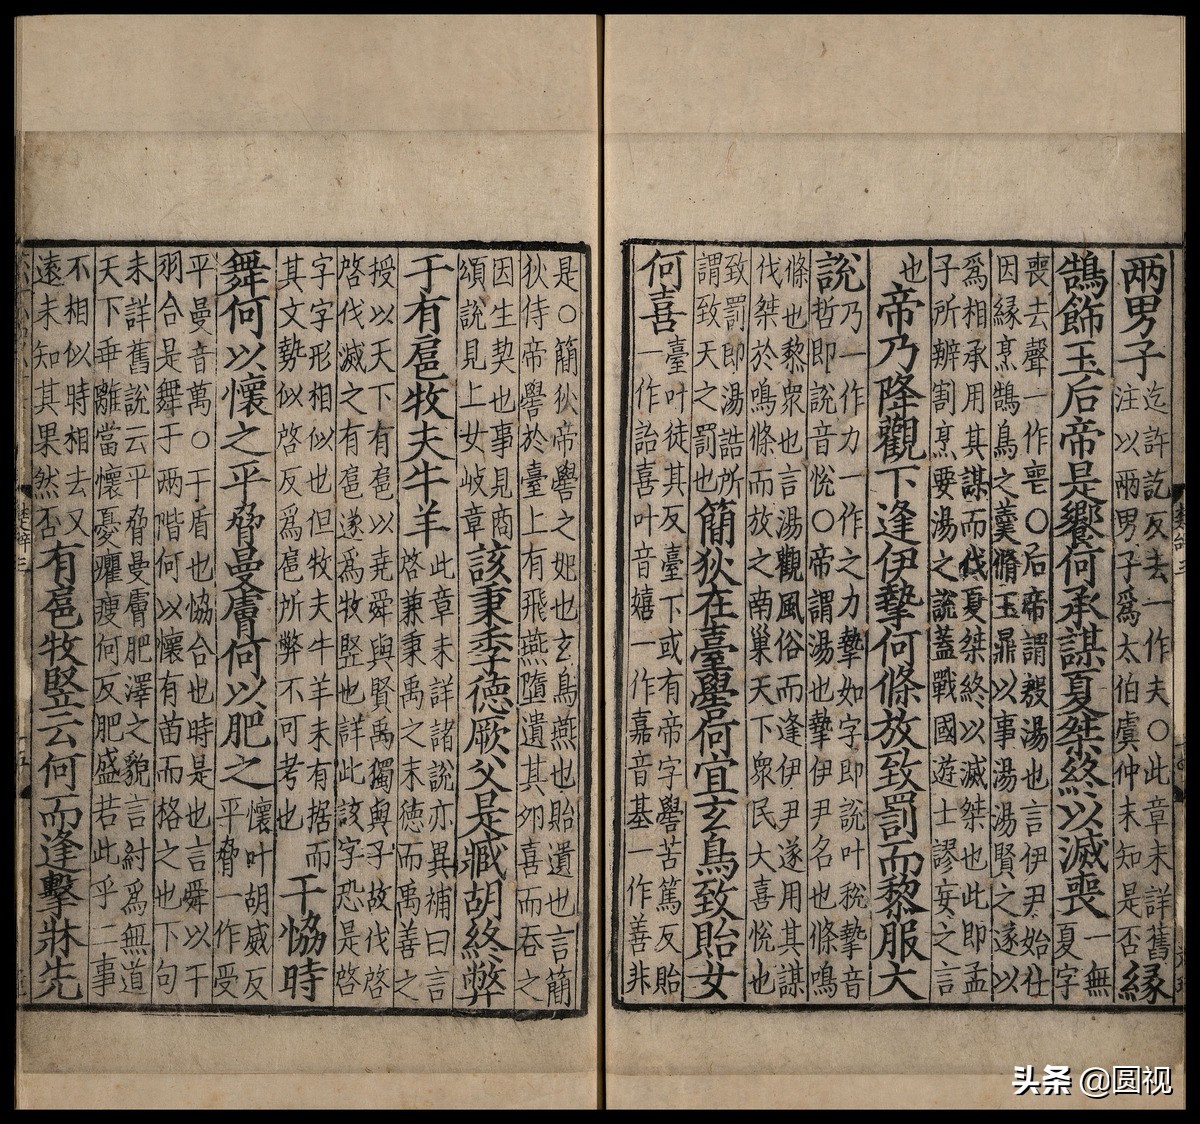 兩男子迄許訖反去一作夫○此章未詳舊
注以兩男子爲太伯虞仲未知是否緣
鵠飾玉后帝是饗何承謀夏桀終以滅喪一無
夏字
喪去聲一作䘮○后帝謂殷湯也言伊尹始仕
因緣烹鵠鳥之羹脩玉鼎以事湯湯賢之遂以
爲相承用其謀而伐夏桀終以滅桀也此即孟
子所辨割烹要湯之說蓋戰國遊士謬妄之言
也帝乃降觀下逢伊摯何條放致罰而黎服大
說乃一作力一作之力摯如字即說叶稅摯音
哲即說音悅○帝謂湯也摯伊尹名也條鳴
條也黎衆也言湯觀風俗而逢伊尹遂用其謀
伐桀於鳴條而放之南巢天下衆民大喜悅也
致罰即湯誥所
謂致天之罰也簡狄在臺嚳何宜玄鳥致貽女
何喜臺叶徒其反臺下或有帝字嚳苦篤反貽
一作詒喜叶音嬉一作嘉音基一作善非
是○簡狄帝嚳之妃也玄鳥燕也貽遺也言簡
狄侍帝嚳於臺上有飛燕墮遺其卵喜而吞之
因生契也事見商
頌說見上女歧章該秉季德厥父是臧胡終弊
于有扈牧夫牛羊此章未詳諸說亦異補曰言
啓兼秉禹之末德而禹善之
授以天下有扈以堯舜與賢禹獨與子故伐啓
啓伐滅之有扈遂爲牧竪也詳此該字恐是啓
字字形相似也但牧夫牛羊未有据而
其文勢似啓反爲扈所弊不可考也干協時
舞何以懷之平脅曼膚何以肥之懷叶胡威反
平脅一作受
平曼音萬○干盾也協合也時是也言舜以干
羽合是舞于兩階何以懷有苗而格之也下句
未詳舊說云平脅曼膚肥澤之貌言紂爲無道
天下乖離當懷憂癯瘦何反肥盛若此乎二事
不相似時相去又
遠未知其果然否有扈牧竪云何而逢擊牀先
头条 @圆视